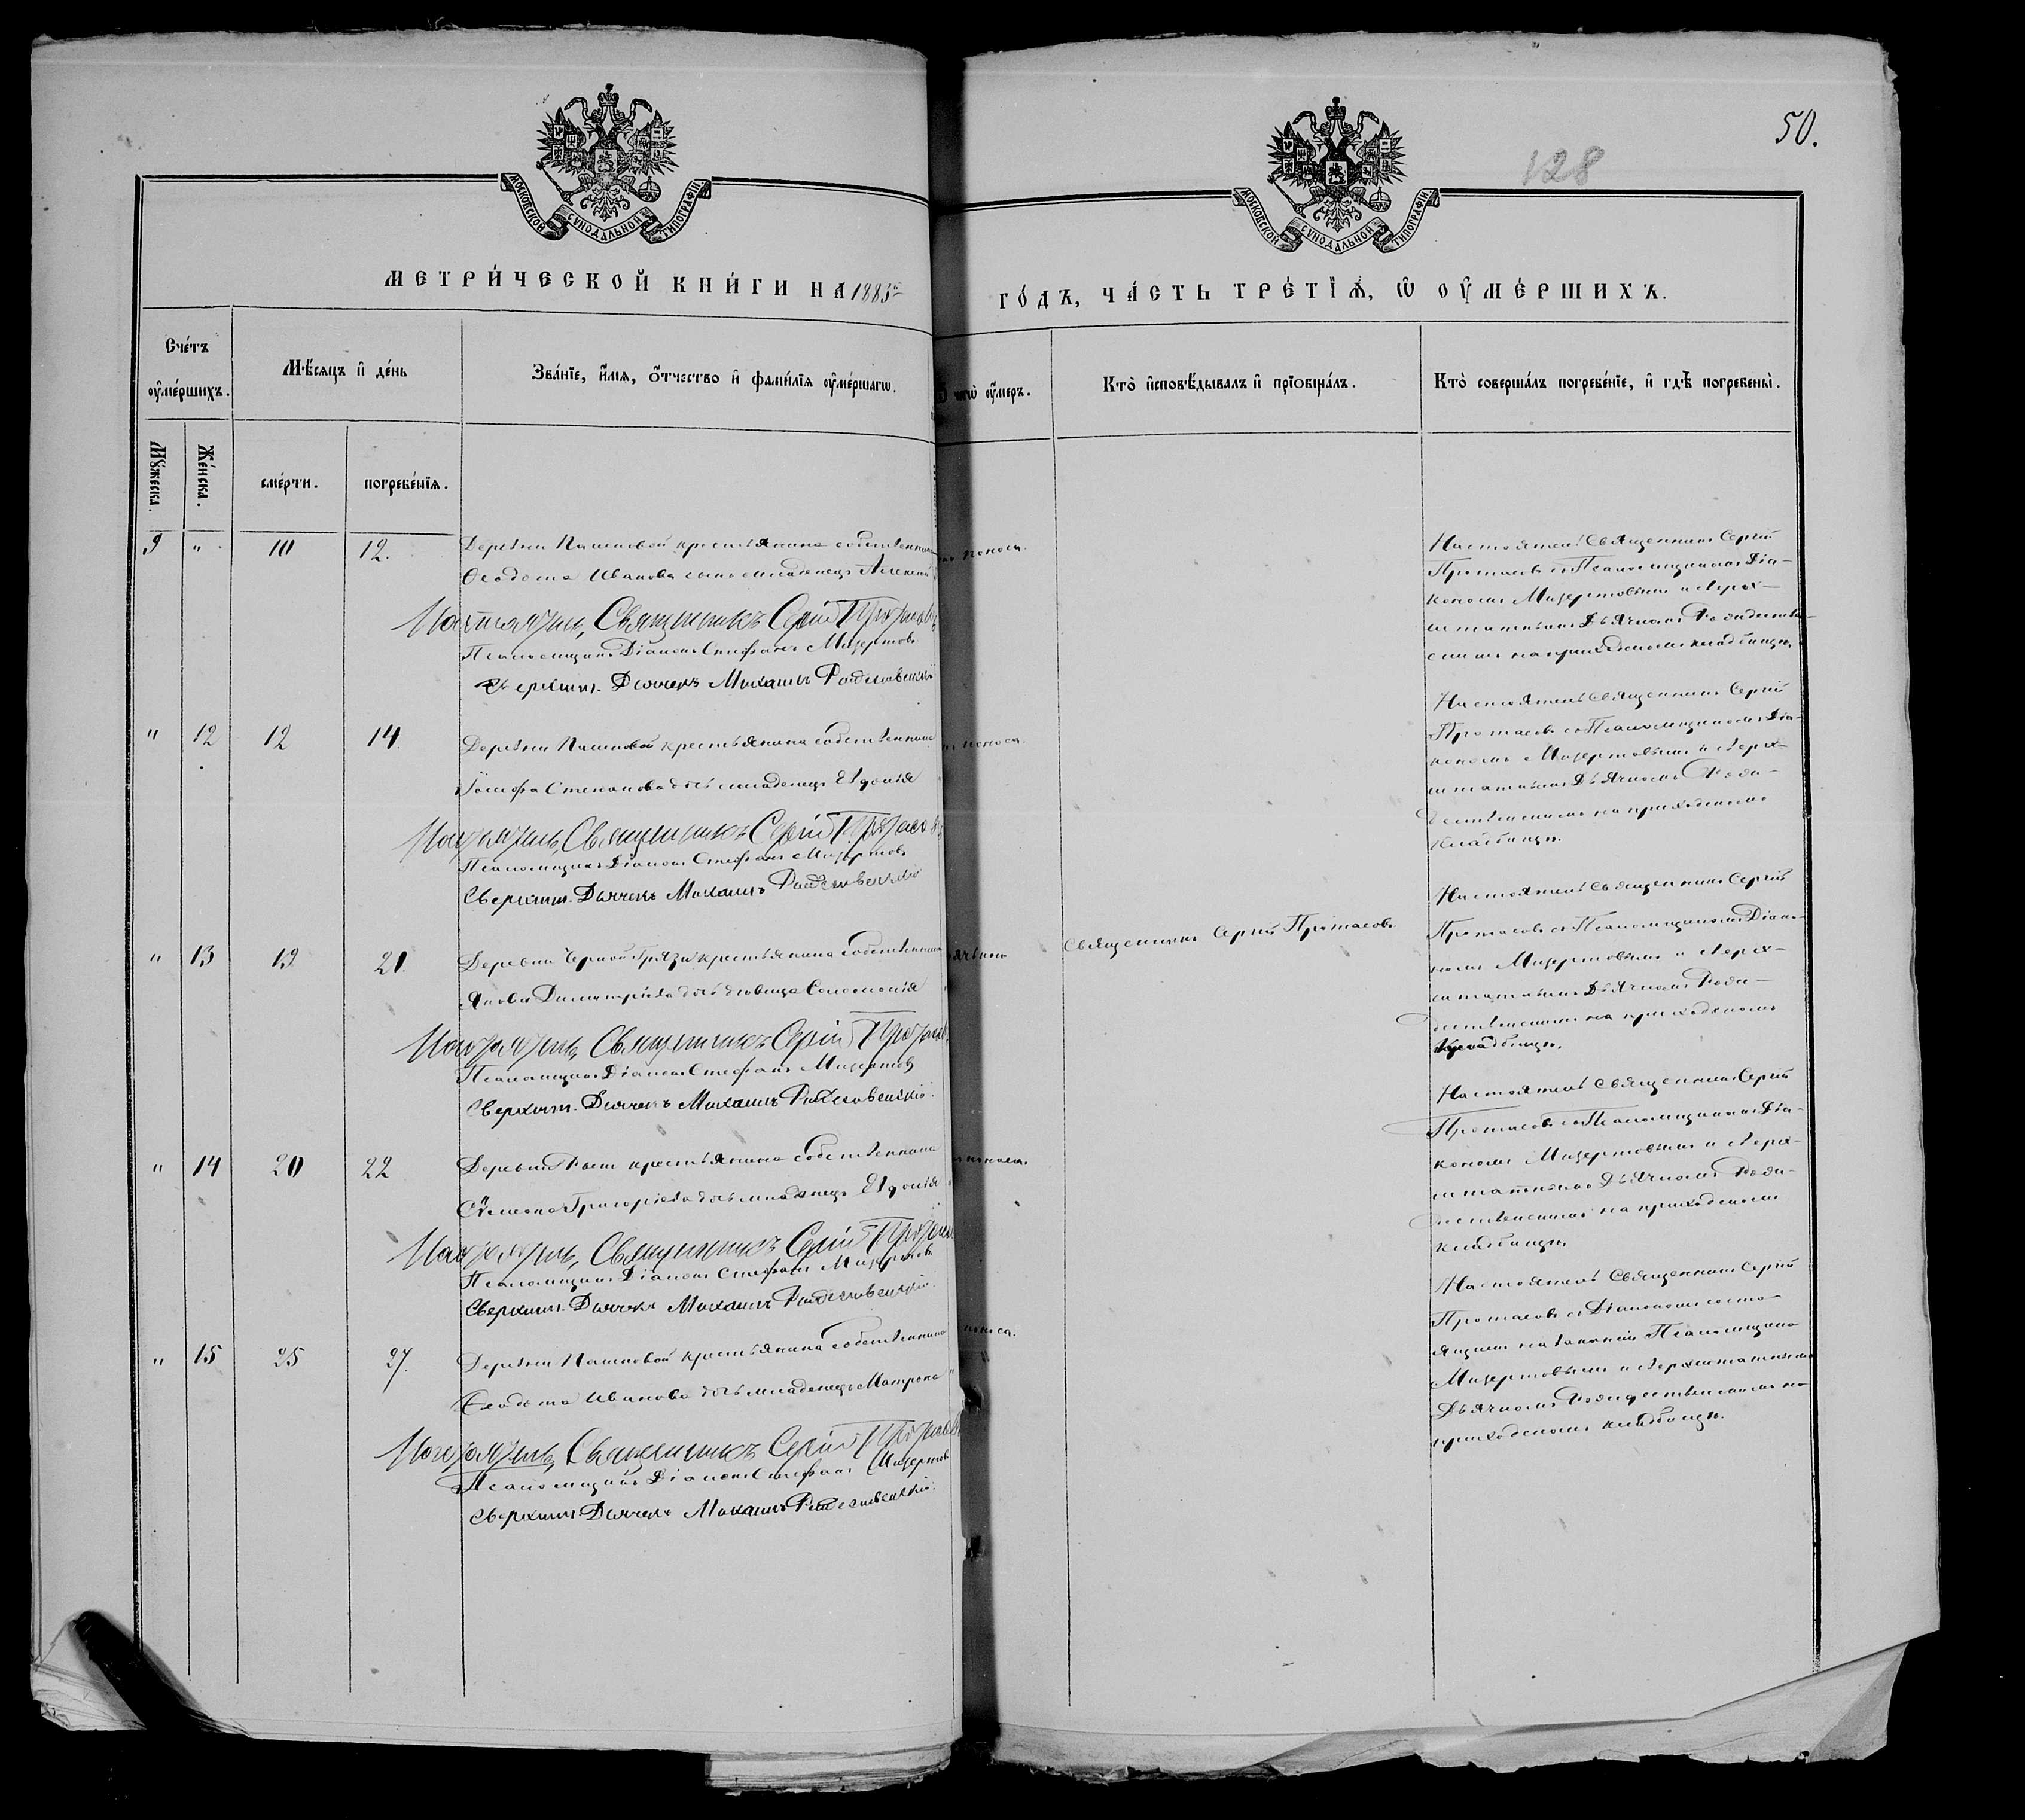 50.
128
МОСКОВСКОЙ СУНОДАЛЬНОЙ ТИПОГРАФІИ.
МОСКОВСКОЙ СУНОДАЛЬНОЙ ТИПОГРАФІИ.
МЕТРИ́ЧЕСКОЙ КНИ́ГИ НА 1885 ГО́ДЪ, ЧА́СТЬ ТРЕ́ТЇѦ, Ѡ ОУМЕ́РШИХЪ.
Сче́тъ оуме́ршихъ.
Мѣ́сяцъ и де́нь
Зва́нїе, и́мя, о́тчество и фами́лїя оуме́ршагѡ.
чегѡ̀ оу́меръ.
Кто̀ исповѣ́дывалъ и прїобща́лъ.
Кто̀ соверша́лъ погребе́нїе, и гдѣ̀ погребены̀.
Мꙋ́жеска.
Же́нска.
сме́рти.
погребе́нїя.
9 " 10 12. Деревни Пашковой крестьянина собственника поноса.
Ѳеодота Иванова сынъ младенецъ Алексей
Настоятель, Священникъ Сергій Протасовъ
Псаломщикъ Діаконъ Стефанъ Мизертовъ
Сверхшт. Дьячекъ Михаилъ Рождественскій
Настоятель Священникъ Сергій
Протасовъ съ Псаломщикомъ Діа-
кономъ Мизертовымъ и сверх-
штатнымъ Дьячкомъ Рождестве-
скимъ на приходскомъ кладбищѣ.
" 12 12 14. Деревни Пашковой крестьянина собственника поноса.
Іосифа Степанова дочь младенецъ Евдокія
Настоятель, Священникъ Сергій Протасовъ
Псаломщикъ Діаконъ Стефанъ Мизертовъ
Сверхшт. Дьячекъ Михаилъ Рождественскій
Настоятель Священникъ Сергій
Протасовъ съ Псаломщикомъ Діа-
кономъ Мизертовымъ и сверх-
штатнымъ Дьячкомъ Рожде-
ственскимъ на приходскомъ
кладбищѣ.
" 13 19 21. Деревни Черной Грязи крестьянина собственника Священникъ Сергій Протасовъ
Якова Димитріева дочь девица Соломонія
Настоятель, Священникъ Сергій Протасовъ
Псаломщикъ Діаконъ Стефанъ Мизертовъ
Сверхшт. Дьячекъ Михаилъ Рождественскій.
Настоятель Священникъ Сергій
Протасовъ съ Псаломщикомъ Діако-
номъ Мизертовымъ и сверх-
штатнымъ Дьячкомъ Рожде-
ственскимъ на приходскомъ
кладбищѣ.
" 14 20 22 крестьянина собственника поноса.
Симеона Григорьева дочь младенецъ Евдокія
Настоятель, Священникъ Сергій Протасовъ
Псаломщикъ Діаконъ Стефанъ Мизертовъ
Сверхшт. Дьячекъ Михаилъ Рождественскій.
Настоятель Священникъ Сергій
Протасовъ съ Псаломщикомъ Діа-
кономъ Мизертовымъ и сверх-
штатнымъ Дьячкомъ Рожде-
ственскимъ на приходскомъ
кладбищѣ.
" 15 25 27. Деревни Пашковой крестьянина собственника поноса.
Ѳеодота Иванова дочь младенецъ Матрона
Настоятель, Священникъ Сергій Протасовъ
Псаломщикъ Діаконъ Стефанъ Мизертовъ
Сверхшт. Дьячекъ Михаилъ Рождественскій.
Настоятель Священникъ Сергій
Протасовъ съ Діакономъ состо-
ящимъ на вакансіи Псаломщика
Мизертовымъ и сверхштатнымъ
Дьячкомъ Рождественскимъ на
приходскомъ кладбищѣ.